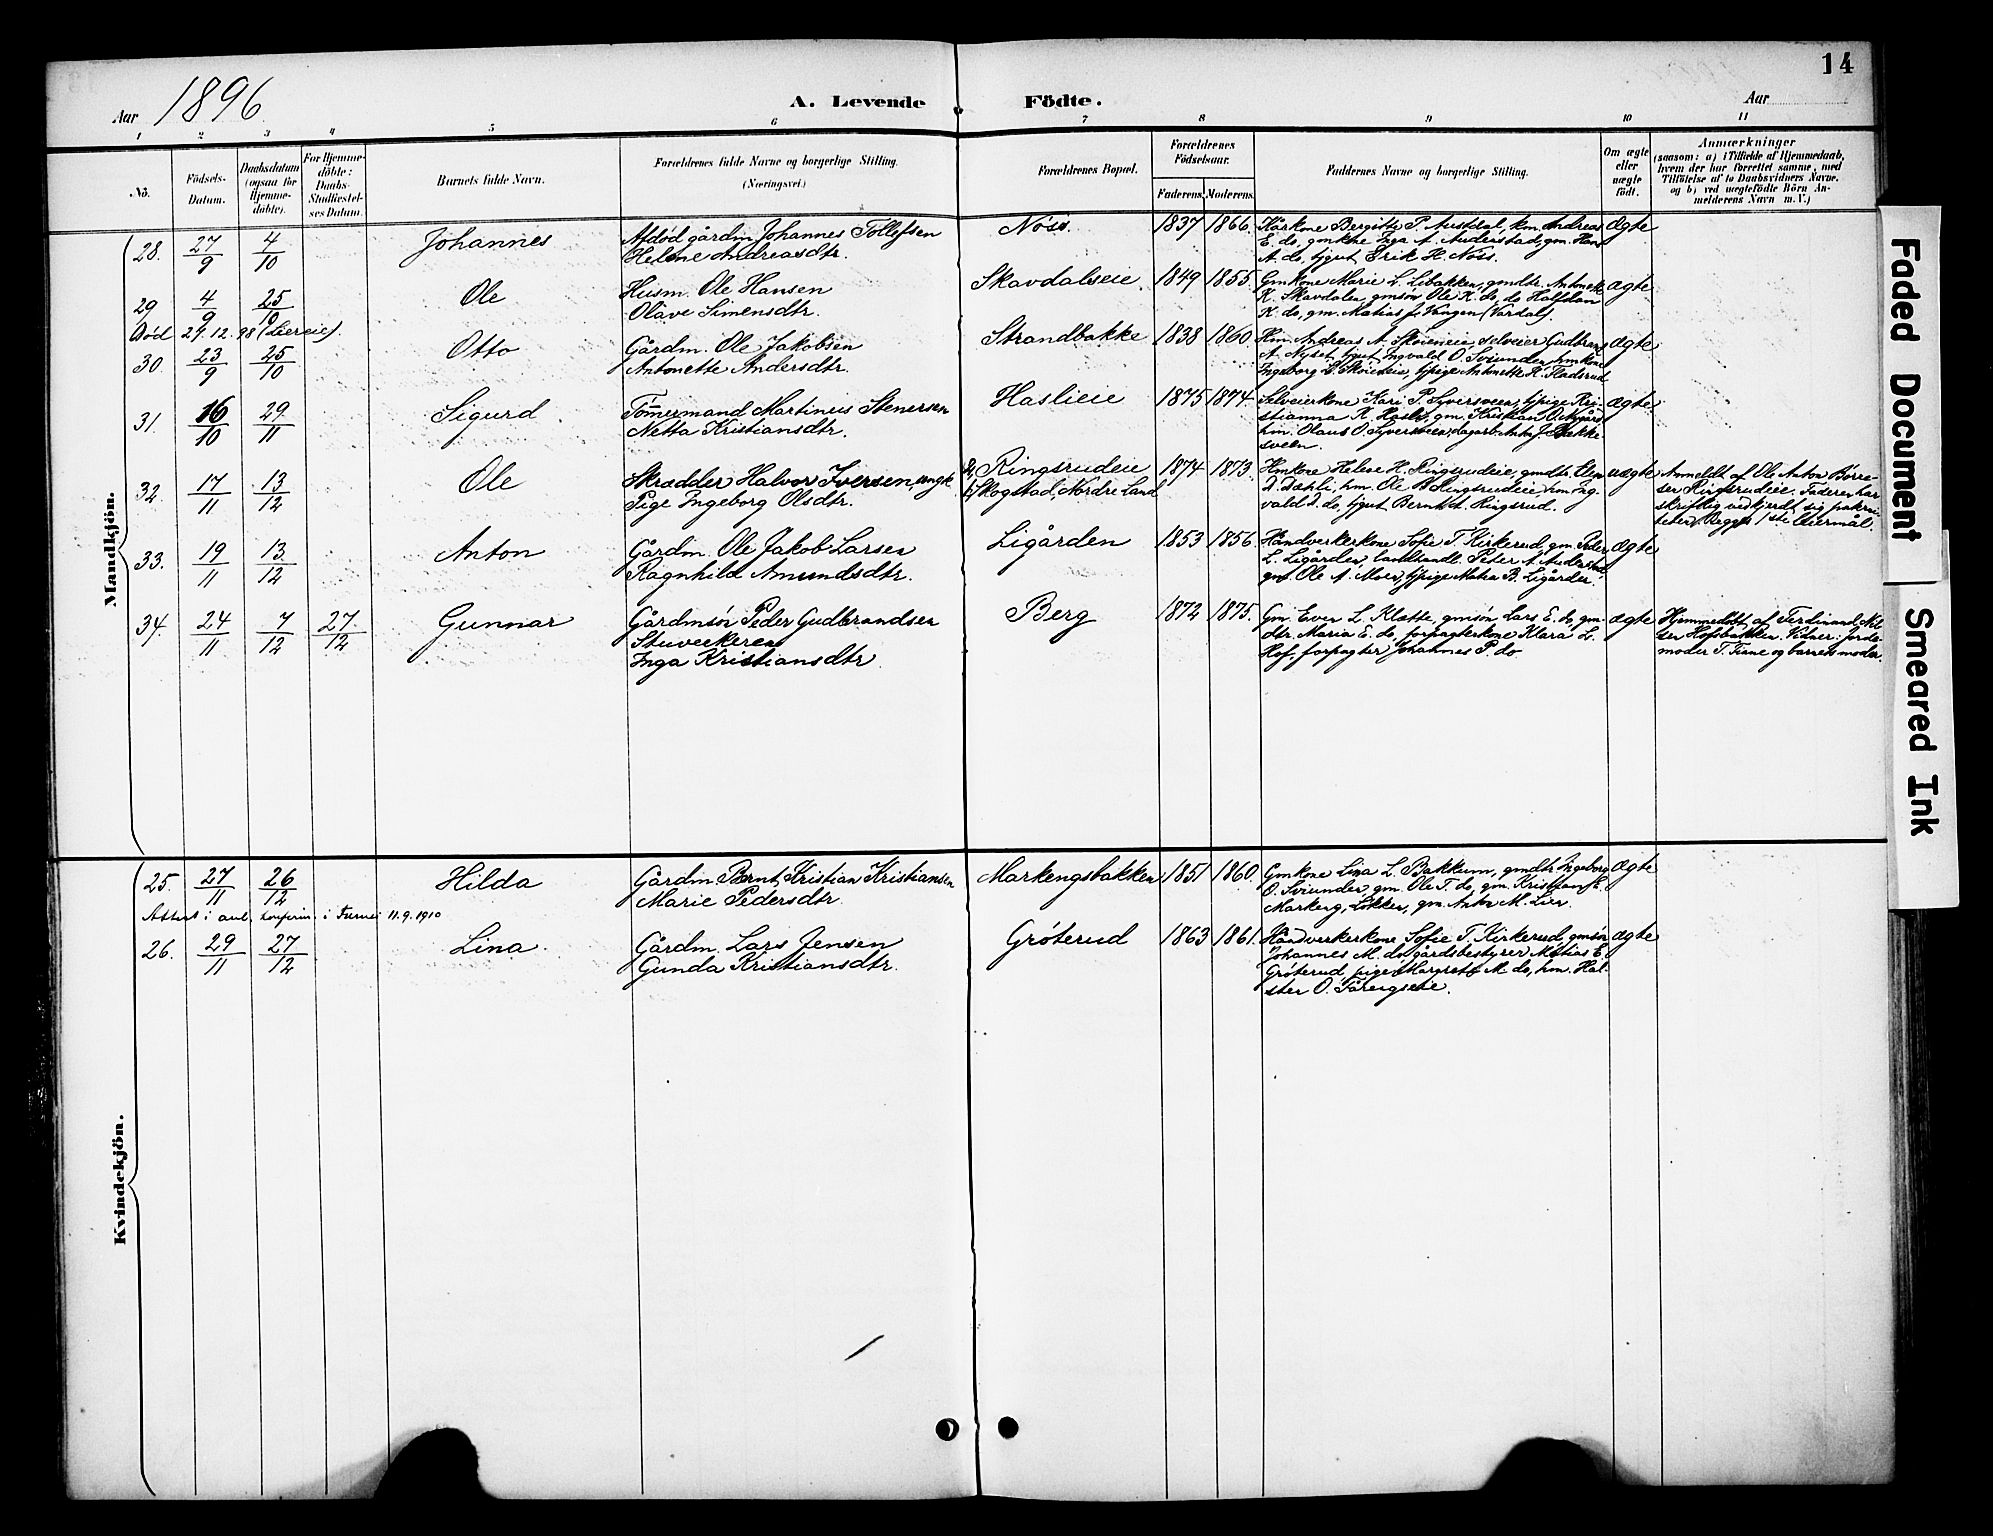 14
Aar 1896
A. Levende Födte.
Aar
1 2 3 4 5 6 7 8 9 10 11
No.
Födsels-Datum.
Daabsdatum (ogsaa for Hjemme-döbte).
For Hjemme-döbte: Daabs-Stadfæstel-ses Datum.
Barnets fulde Navn.
Forældrenes fulde Navne og borgerlige Stilling. (Næringsvei.)
Forældrenes Bopæl.
Forældrenes Födselsaar.
Faderens. Moderens.
Faddernes Navne og borgerlig Stilling.
Om ægte eller uægte födt.
Anmærkninger
(saasom: a) i Tilfælde af Hjemmedaab, hvem der har forrettet samme, med Tilföielse af to Daabsvidners Navne. og b) ved uægtefödte Börn An-melderens Navn m. V.)
Mandkjön.
28. 27/9 4/10 Johannes
Afdöd gårdm. Johannes Tollefsen
Helene Andreasdtr.
Nöss. 1837 1866.
Kårkone Bergitte P. Austdal, km. Andreas
E. do, gmkone Inga A. Auderstad, gm. Hans
A. do, tjgut Erik H. Nöss.
Ægte
29 4/9 25/10 Ole
Husm. Ole Hansen
Olave Simensdtr.
Skavdalseie. 1849 1855.
Gmkone Marie L. Libakken, gmdtr. Antonette
K. Skavdalen, gmsön Ole K. do, do Halfdan
K. do, gm. Matias J. Vangen (Vardal).
ægte
Död 29.12.98 (Liereie).
30. 23/9 25/10 Otto
Gårdm. Ole Jakobsen
Antonette Andersdtr.
Strandbakke 1838 1860
Hm. Andreas A. Skoieneie Selveier Gudbrand
A. Nyset, tjgut Ingvald O. Sviunden, hmkone
Ingeborg S. Skoieneie, tjpige Antonette K. Fladsrud
ægte
31. 16/10 29/11 Sigurd
Tömermand Martinus Stenersen
Netta Kristiansdtr.
Haslieie 1875 1874.
Selveierkone Kari P. Syversveen, tjpige Kri-
stianna K. Hasli, gm. Kristian O. Nygård,
hm. Olaus O. Syversveen, dagarb. Anton J. Bakke-
sveen.
ægte
32. 17/11 13/12 Ole
Skrædder Halvor Iversen, ungk.
Pige Ingeborg Olsdtr.
Ringsrudeie
Skogstad, Nordre Land
1874 1873.
Hmkone Helene H. Ringsrudeie, gmdtr. Elen
D. Dæhli, hm. Ole B. Ringsrudeie, hm. Ing-
vald D. do, tjgut Bernt A. Ringsrud.
uægte
Anmeldt af Ole Anton Börre-
sen Ringsrudeie. Faderen har
skriftlig vedkjendt sig paterni-
teten. Begges 1ste Leiermål.
33. 19/11 13/12 Anton
Gårdm. Ole Jakob Larsen
Ragnhild Amundsdtr.
Ligården 1853 1856.
Håndverkerkone Sofie T. Kirkerud, gm. Peder
L. Ligården, landhandl. Peter A. Auderstad,
gm. Ole A. Moen, tjpige Matea B. Ligården.
Ægte
34. 24/11 7/12 27/12 Gunnar
Gårdmsön Peder Gudbrandsen
Stuveekeren
Inga Kristiansdtr.
Berg 1872 1875.
Gm. Even L. Klette, gmsön Lars E. do, gm-
dtr. Maria E. do, forpagterkone Klara L.
Hof, forpagter Johannes P. do
ægte
Hjemmedöbt af Ferdinand Nil-
sen Hofsbakken. Vidner: Jorde-
moder T. Finne og barnets moder.
Kvindekjön.
25. 27/11 26/12 Hilda
Gårdm. Bernt Kristian Kristiansen
Marie Pedersdtr.
Markengsbakken 1851 1860.
Gmkone Lina L. Bakkum, gmdtr. Ingeborg
O. Sviunden, gm. Ole T. do, gm. Kristian K.
Markeng, Lökken, gm. Anton M. Lien.
Ægte
Attest i anl. konfirm. i Furnes 11.9.1910
26. 29/11 27/12 Lina
Gårdm. Lars Jensen
Gunda Kristiansdtr.
Gröterud 1863 1861.
Håndverkerkone Sofie T. Kirkerud, gmsön
Johannes M. do, gårdsbestyrer Matias E.
Gröterud, pige Margrete M. do, hm. Hal-
sten O. Fårengseie.
ægte
Faded Document
Smeared Ink